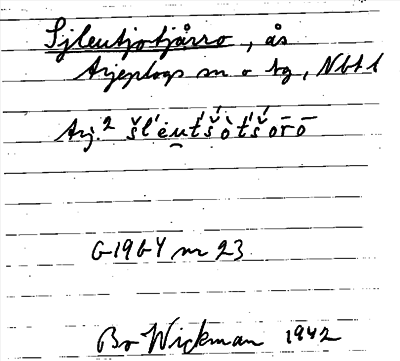 Sjleutjotjårro, ås
Arjeplogs sn o tg, Nbt l
Arj.² š́l'èu̯t́š́òt́š́ōrō
G 1964 nr 23
Bo Wickman 1942